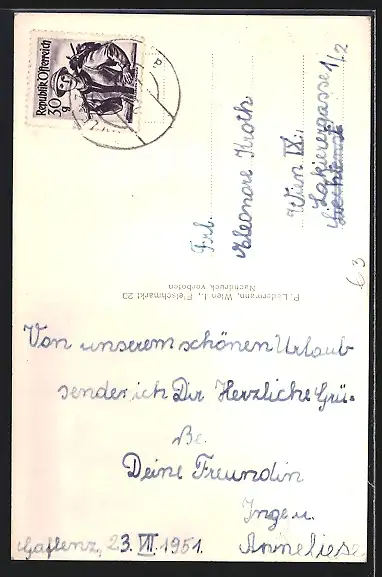 Republik Österreich
30
g
Frl.
Eleonore Kroth
Wien IX.,
Lakierergasse 1/2
63
P. Ledermann, Wien I., Fleischmarkt 20
Nachdruck verboten
Von unserem schönen Urlaub
sender ich Dir Herzliche Grü-
ße.
Deine Freundin
Inge u.
Anneliese
Gaflenz, 23. VII. 1951.